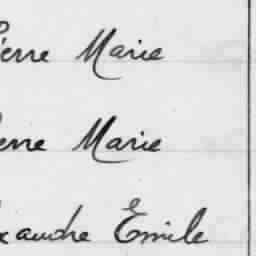 ierre Marie
erre Marie
exandre Emile